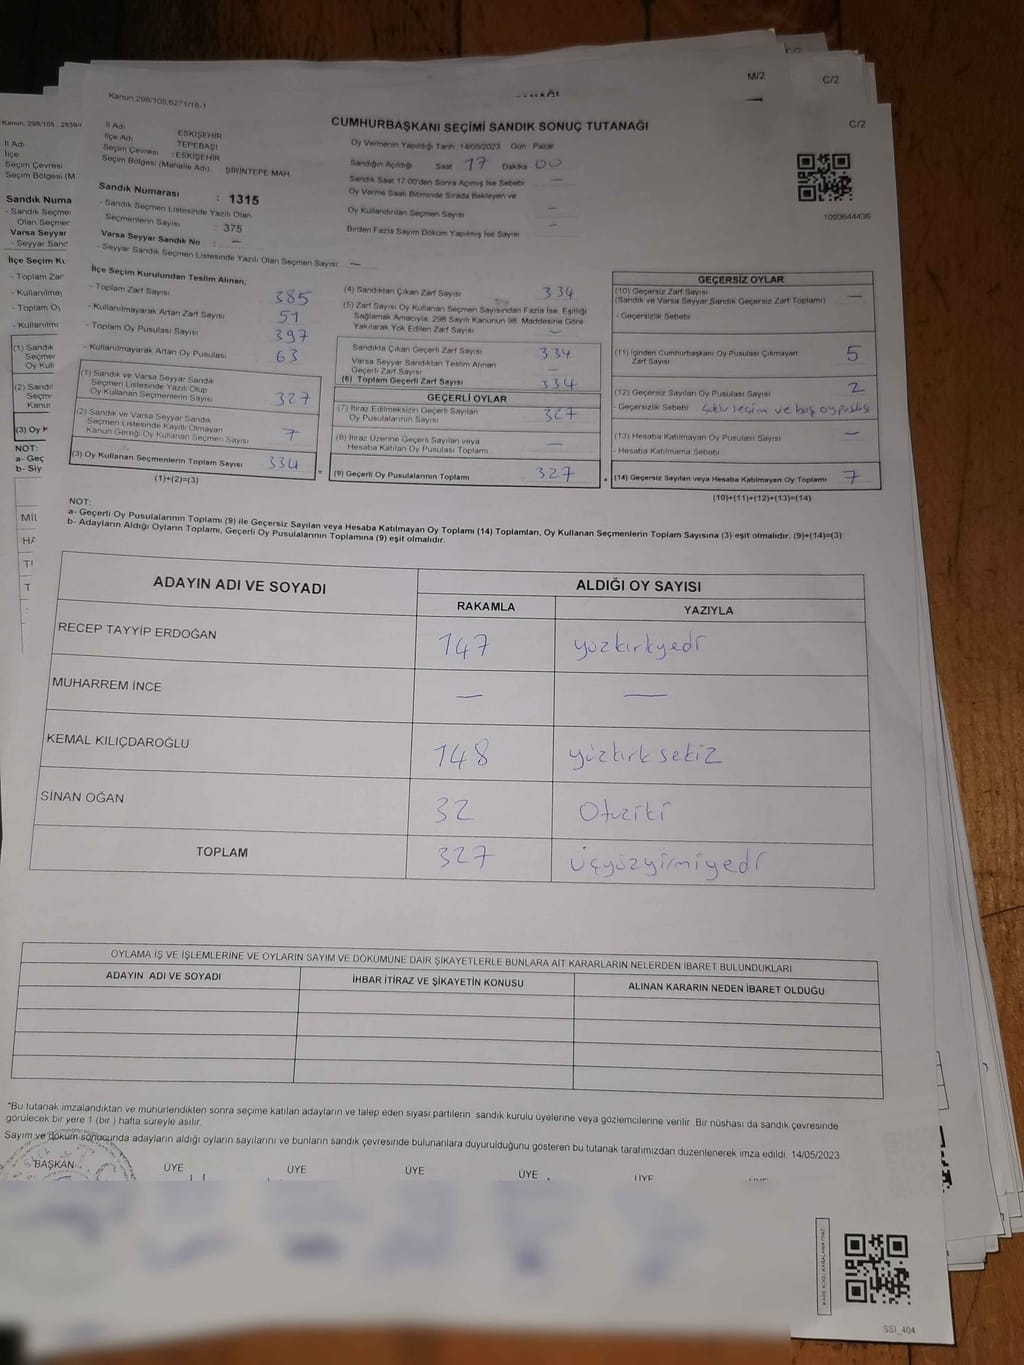 C/2
M/2
C/2
C/2
Kanun 298/105,6271/16-1
CUMHURBAŞKANI SEÇİMİ SANDIK SONUÇ TUTANAĞI
İl Adı : ESKİŞEHİR
İlçe Adı : TEPEBAŞI
Seçim Çevresi : ESKİŞEHİR
Seçim Bölgesi (Mahalle Adı) : ŞİRİNTEPE MAH.
Sandık Numarası : 1315
- Sandık Seçmen Listesinde Yazılı Olan
Seçmenlerin Sayısı : 375
Varsa Seyyar Sandık No : —
- Seyyar Sandık Seçmen Listesinde Yazılı Olan Seçmen Sayısı: —
Oy Vermenin Yapıldığı Tarih 14/05/2023 Gün Pazar
Sandığın Açıldığı Saat 17 Dakika 00
Sandık Saat 17.00'den Sonra Açılmış İse Sebebi —
Oy Verme Saati Bitiminde Sırada Bekleyen ve
Oy Kullandırılan Seçmen Sayısı —
Birden Fazla Sayım Döküm Yapılmış İse Sayısı —
1003644436
İlçe Seçim Kurulundan Teslim Alınan;
- Toplam Zarf Sayısı 385
- Kullanılmayarak Artan Zarf Sayısı 51
- Toplam Oy Pusulası Sayısı 397
- Kullanılmayarak Artan Oy Pusulası 63
(1) Sandık ve Varsa Seyyar Sandık
Seçmen Listesinde Yazılı Olup
Oy Kullanan Seçmenlerin Sayısı 327
(2) Sandık ve Varsa Seyyar Sandık
Seçmen Listesinde Kayıtlı Olmayan
Kanun Gereği Oy Kullanan Seçmen Sayısı 7
(3) Oy Kullanan Seçmenlerin Toplam Sayısı 334
(1)+(2)=(3)
(4) Sandıktan Çıkan Zarf Sayısı 334
(5) Zarf Sayısı Oy Kullanan Seçmen Sayısından Fazla İse, Eşitliği
Sağlamak Amacıyla, 298 Sayılı Kanunun 98. Maddesine Göre
Yakılarak Yok Edilen Zarf Sayısı —
Sandıkta Çıkan Geçerli Zarf Sayısı 334
Varsa Seyyar Sandıktan Teslim Alınan
Geçerli Zarf Sayısı —
(6) Toplam Geçerli Zarf Sayısı 334
GEÇERLİ OYLAR
(7) İtiraz Edilmeksizin Geçerli Sayılan
Oy Pusulalarının Sayısı 327
(8) İtiraz Üzerine Geçerli Sayılan veya
Hesaba Katılan Oy Pusulası Toplamı —
= (9) Geçerli Oy Pusulalarının Toplamı 327 +
GEÇERSİZ OYLAR
(10) Geçersiz Zarf Sayısı
(Sandık ve Varsa Seyyar Sandık Geçersiz Zarf Toplamı) —
- Geçersizlik Sebebi
(11) İçinden Cumhurbaşkanı Oy Pusulası Çıkmayan
Zarf Sayısı 5
(12) Geçersiz Sayılan Oy Pusulası Sayısı 2
- Geçersizlik Sebebi seçim ve boş oy pusulası
(13) Hesaba Katılmayan Oy Pusulası Sayısı —
- Hesaba Katılmama Sebebi
(14) Geçersiz Sayılan veya Hesaba Katılmayan Oy Toplamı 7
(10)+(11)+(12)+(13)=(14)
NOT:
a- Geçerli Oy Pusulalarının Toplamı (9) ile Geçersiz Sayılan veya Hesaba Katılmayan Oy Toplamı (14) Toplamları, Oy Kullanan Seçmenlerin Toplam Sayısına (3) eşit olmalıdır. (9)+(14)=(3)
b- Adayların Aldığı Oyların Toplamı, Geçerli Oy Pusulalarının Toplamına (9) eşit olmalıdır.
ADAYIN ADI VE SOYADI ALDIĞI OY SAYISI
RAKAMLA YAZIYLA
RECEP TAYYİP ERDOĞAN 147 yüzkırkyedi
MUHARREM İNCE — —
KEMAL KILIÇDAROĞLU 148 yüzkırk sekiz
SİNAN OĞAN 32 Otuziki
TOPLAM 327 üçyüzyirmiyedi
OYLAMA İŞ VE İŞLEMLERİNE VE OYLARIN SAYIM VE DÖKÜMÜNE DAİR ŞİKAYETLERLE BUNLARA AİT KARARLARIN NELERDEN İBARET BULUNDUKLARI
ADAYIN ADI VE SOYADI İHBAR İTİRAZ VE ŞİKAYETİN KONUSU ALINAN KARARIN NEDEN İBARET OLDUĞU
*Bu tutanak imzalandıktan ve mühürlendikten sonra seçime katılan adayların ve talep eden siyasi partilerin sandık kurulu üyelerine veya gözlemcilerine verilir. Bir nüshası da sandık çevresinde
görülecek bir yere 1 (bir) hafta süreyle asılır.
Sayım ve döküm sonucunda adayların aldığı oyların sayılarını ve bunların sandık çevresinde bulunanlara duyurulduğunu gösteren bu tutanak tarafımızdan düzenlenerek imza edildi. 14/05/2023
BAŞKAN ÜYE ÜYE ÜYE ÜYE ÜYE
SSI_404